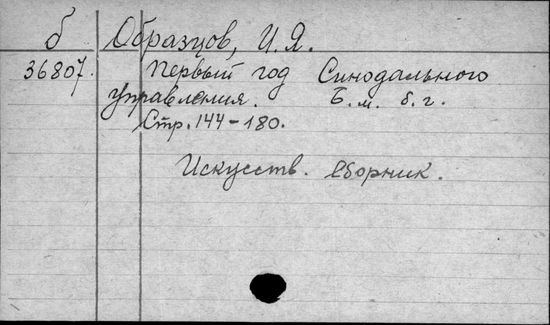 б Образцов, И. Я.
36807. Первый год Синодального
управления. Б. м. б. г.
Стр. 144-180.
Искусств. сборник.